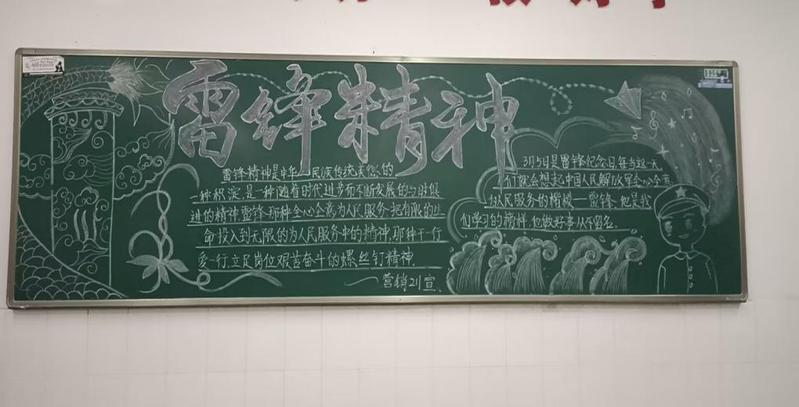 雷锋精神
雷锋精神是中华民族传统美德的
一种积淀,是一种随着时代进步而不断发展的与时俱
进的精神雷锋那种全心全意为人民服务,把有限的生
命投入到无限的为人民服务中的精神,那种干一行
爱一行,立足岗位艰苦奋斗的螺丝钉精神.
营销211宣
3月5日是雷锋纪念日每当这一天
人们就会想起中国人民解放军全心全意
为人民服务的楷模——雷锋,他是我
们学习的榜样,他做好事从不留名.